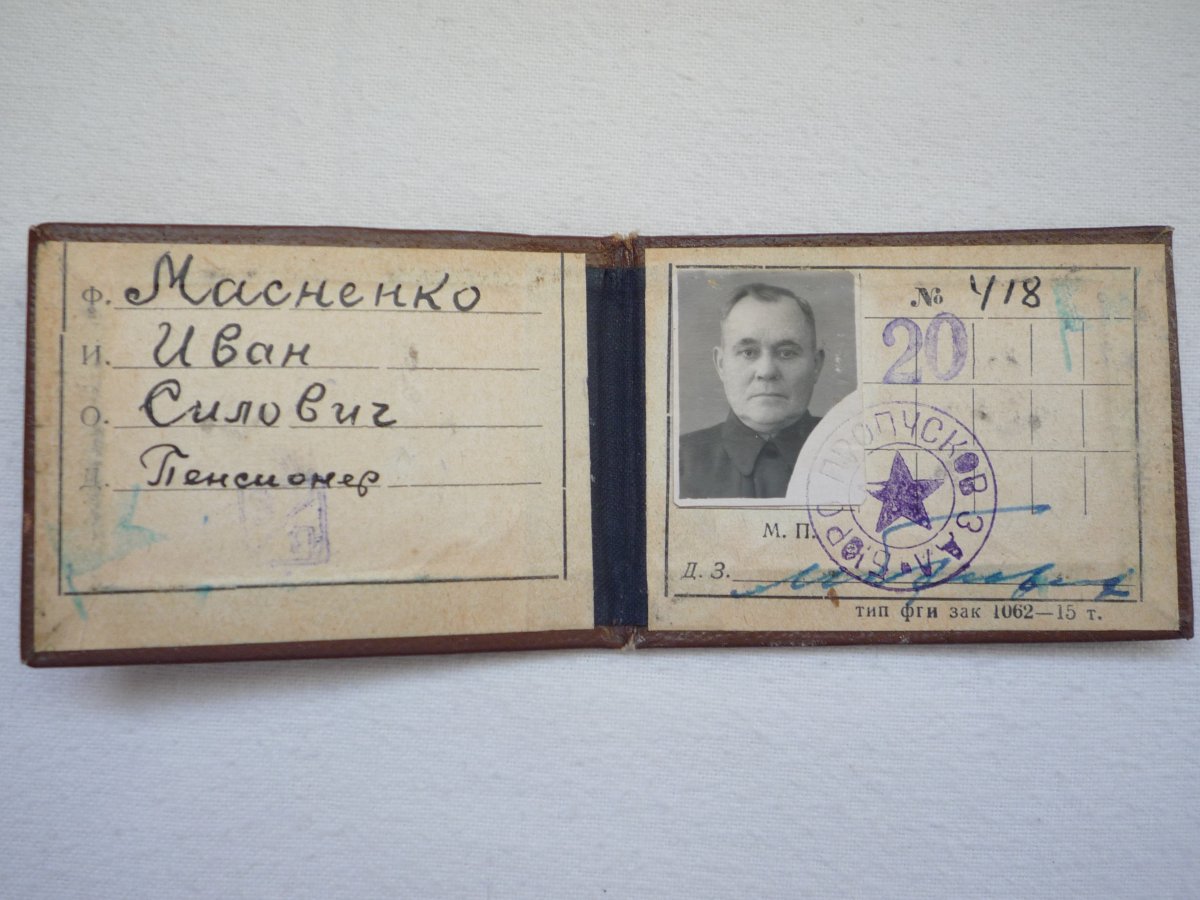 Ф. Масненко
И. Иван
О. Силович
Д. Пенсионер
№ 418
20
БЮРО ПРОПУСКОВ
М. П.
Д. З.
тип фги зак 1062—15 т.